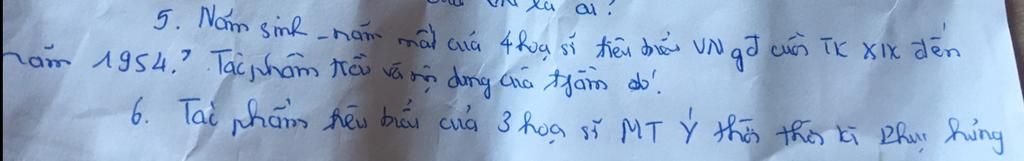 VN xứ ai?
5. Năm sinh - năm mất của 4 hoạ sĩ tiêu biểu VN gđ cuối TK XIX đến
năm 1954? Tác phẩm và nội dung của đó.
6. Tác phẩm tiêu biểu của 3 hoạ sĩ MT Ý thời kì Phục hưng